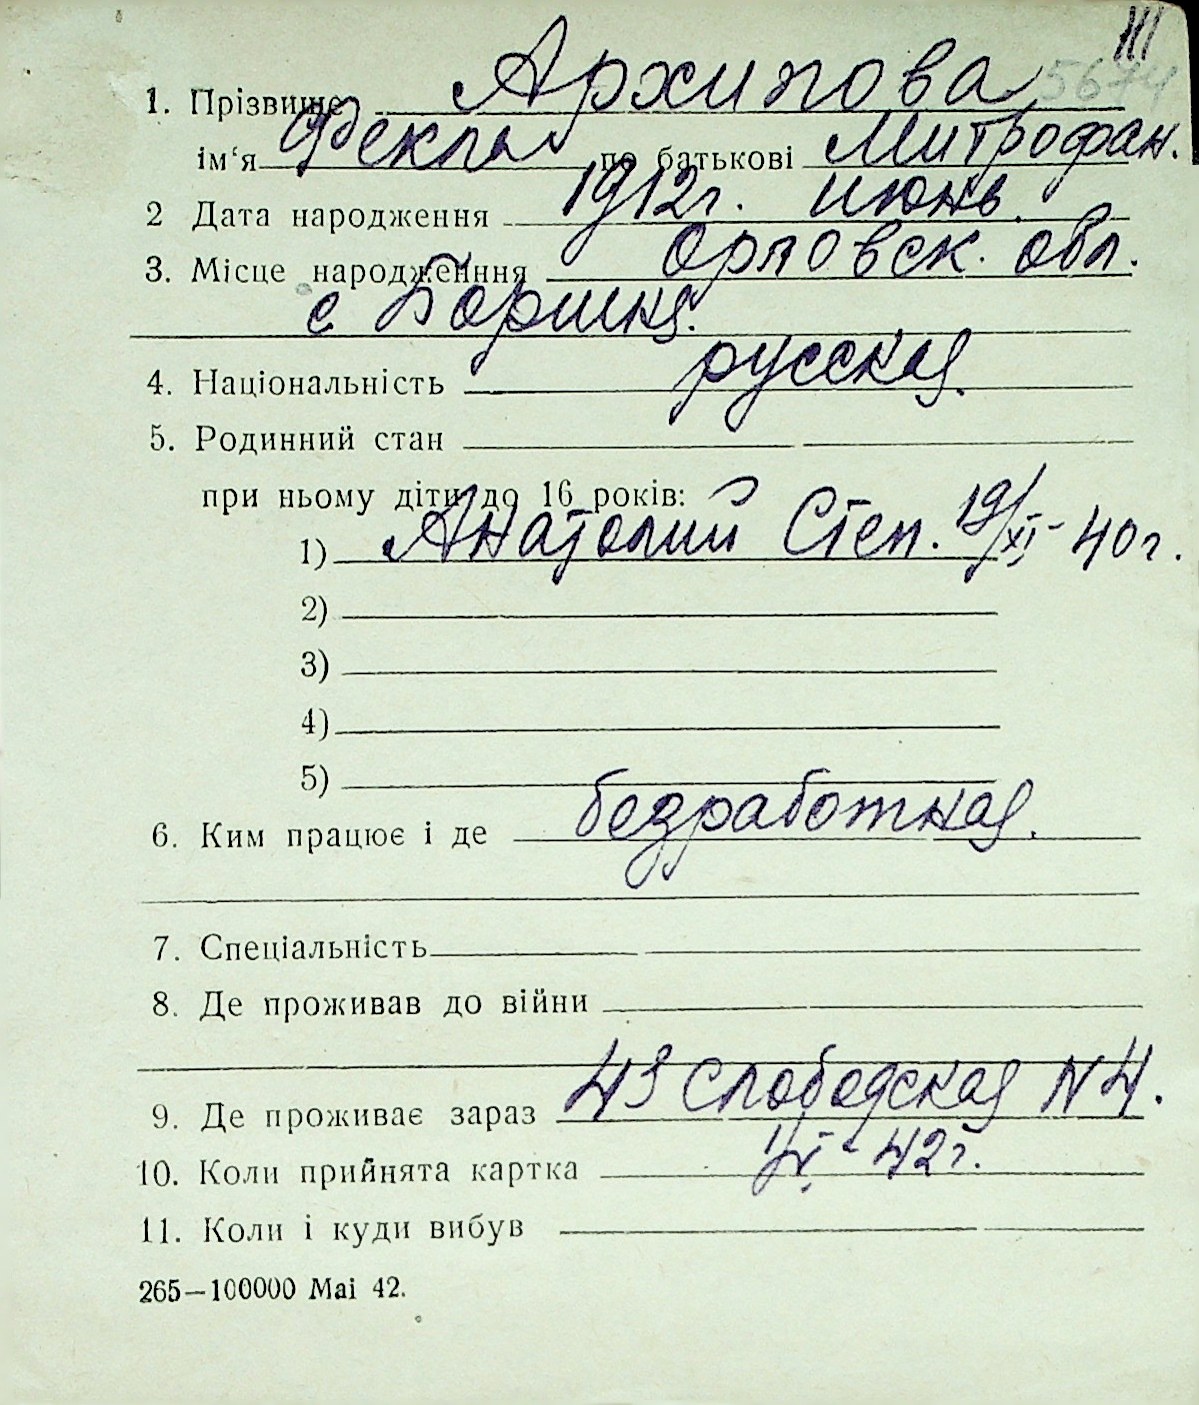 III
5674
1. Прізвище Архипова
ім‘я Фекла по батькові Митрофан.
2 Дата народження 1912г. июнь.
3. Місце народженння Орловск. обл.
с Борщня.
4. Національність русская.
5. Родинний стан
при ньому діти до 16 років:
1) Анатолий Степ. 19/XI-40г.
2)
3)
4)
5)
6. Ким працює і де безработная.
7. Спеціальність
8. Де проживав до війни
9. Де проживає зараз 43 Слободская N 4.
10. Коли прийнята картка 42г.
11. Коли і куди вибув
265—100000 Маі 42.